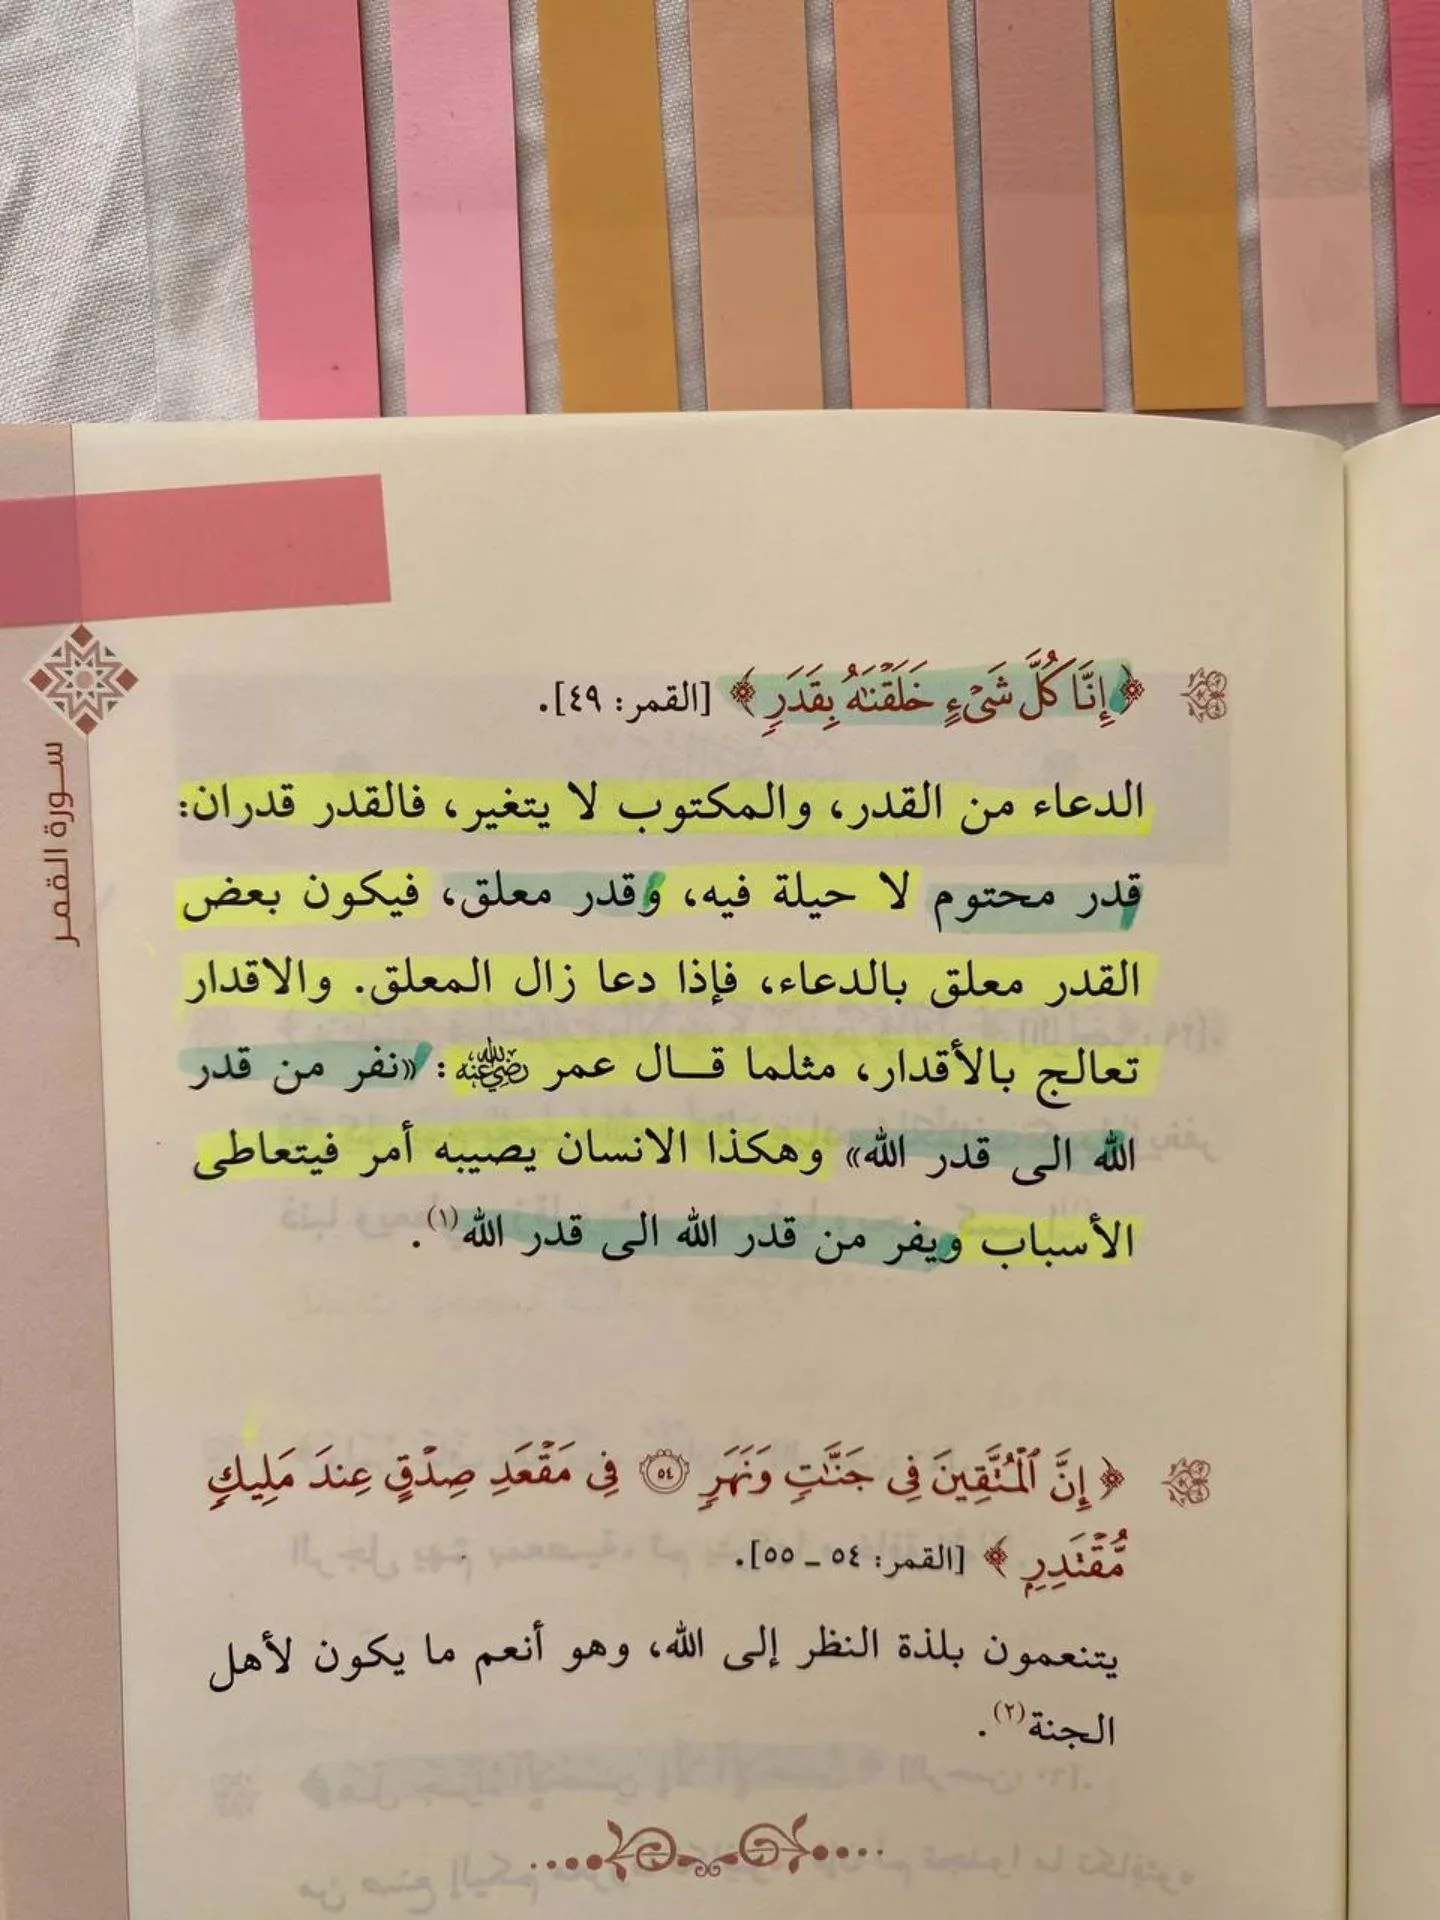 سورة القمر
﴿إِنَّا كُلَّ شَيْءٍ خَلَقْنَٰهُ بِقَدَرٍ﴾ [القمر: ٤٩].
الدعاء من القدر، والمكتوب لا يتغير، فالقدر قدران:
قدر محتوم لا حيلة فيه، وقدر معلق، فيكون بعض
القدر معلق بالدعاء، فإذا دعا زال المعلق. والاقدار
تعالج بالأقدار، مثلما قـــال عمر رضي الله عنه: «نفر من قدر
الله الى قدر الله» وهكذا الانسان يصيبه أمر فيتعاطى
الأسباب ويفر من قدر الله الى قدر الله(١).
﴿إِنَّ ٱلْمُتَّقِينَ فِي جَنَّٰتٍ وَنَهَرٍ ٥٤ فِي مَقْعَدِ صِدْقٍ عِندَ مَلِيكٍ
مُّقْتَدِرٍ﴾ [القمر: ٥٤ ـ ٥٥].
يتنعمون بلذة النظر إلى الله، وهو أنعم ما يكون لأهل
الجنة(٢).